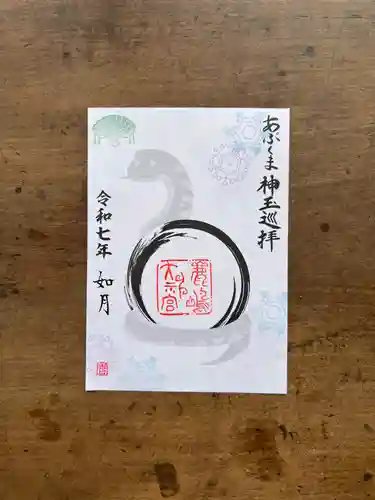 あぶくま神玉巡拝
鹿嶋
天神宮
令和七年 如月